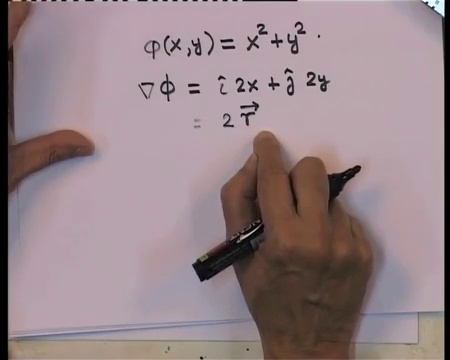 φ(x,y) = x² + y² .
∇φ = î 2x + ĵ 2y
= 2 r⃗